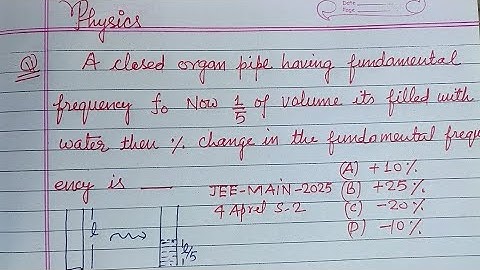 Physics
Date
Page
Q A closed organ pipe having fundamental
frequency f₀ Now 1/5 of volume its filled with
water then % change in the fundamental frequ
ency is ___
JEE-MAIN-2025
4 Aprel S-2
(A) +10%
(B) +25%
(C) -20%
(D) -10%
l
l/5